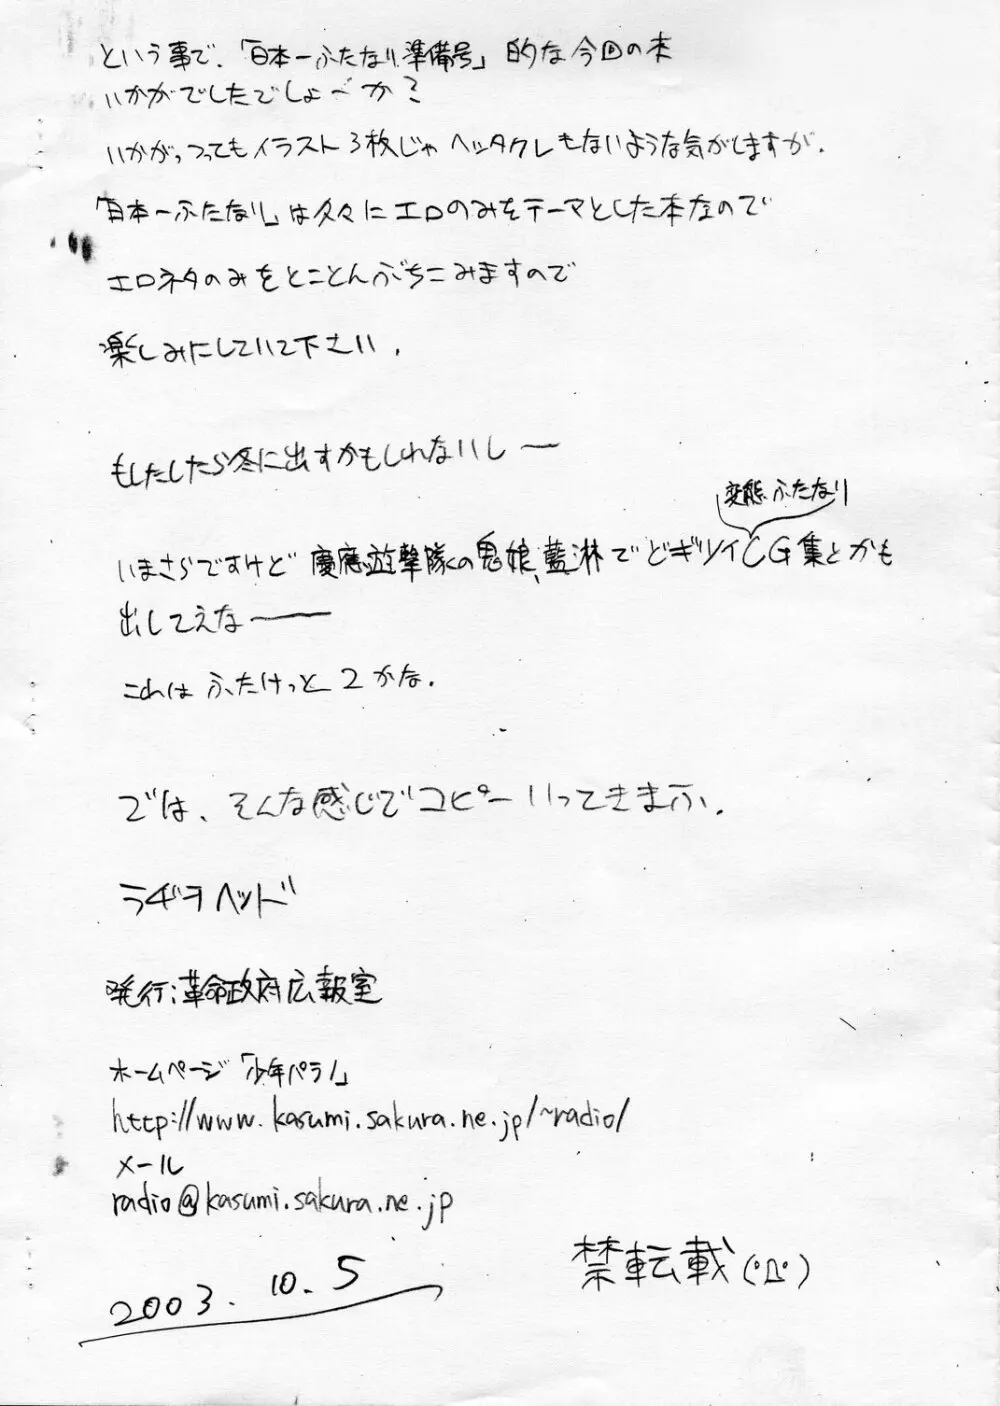 という事で、「日本一ふたなり準備号」的な今回の本
いかがでしたでしょーか?
いかがっつってもイラスト3枚じゃヘッタクレもないような気がしますが.
「日本一ふたなり」は久々にエロのみをテーマとした本なので
エロネタのみをとことんぶちこみますので
楽しみにしていて下さい.
もしたしたら冬に出すかもしれないし〜
変態ふたなり
いまさらですけど慶應遊撃隊の鬼娘、藍淋でどギツイCG集とかも
出してえな――
これはふたけっと2かな.
では、そんな感じでコピーいってきまふ.
ラヂヲヘッド
発行:革命政府広報室
ホームページ「少年パラノ」
http://www.kasumi.sakura.ne.jp/~radio/
メール
radio@kasumi.sakura.ne.jp
禁転載(゚Д゚)
2003.10.5